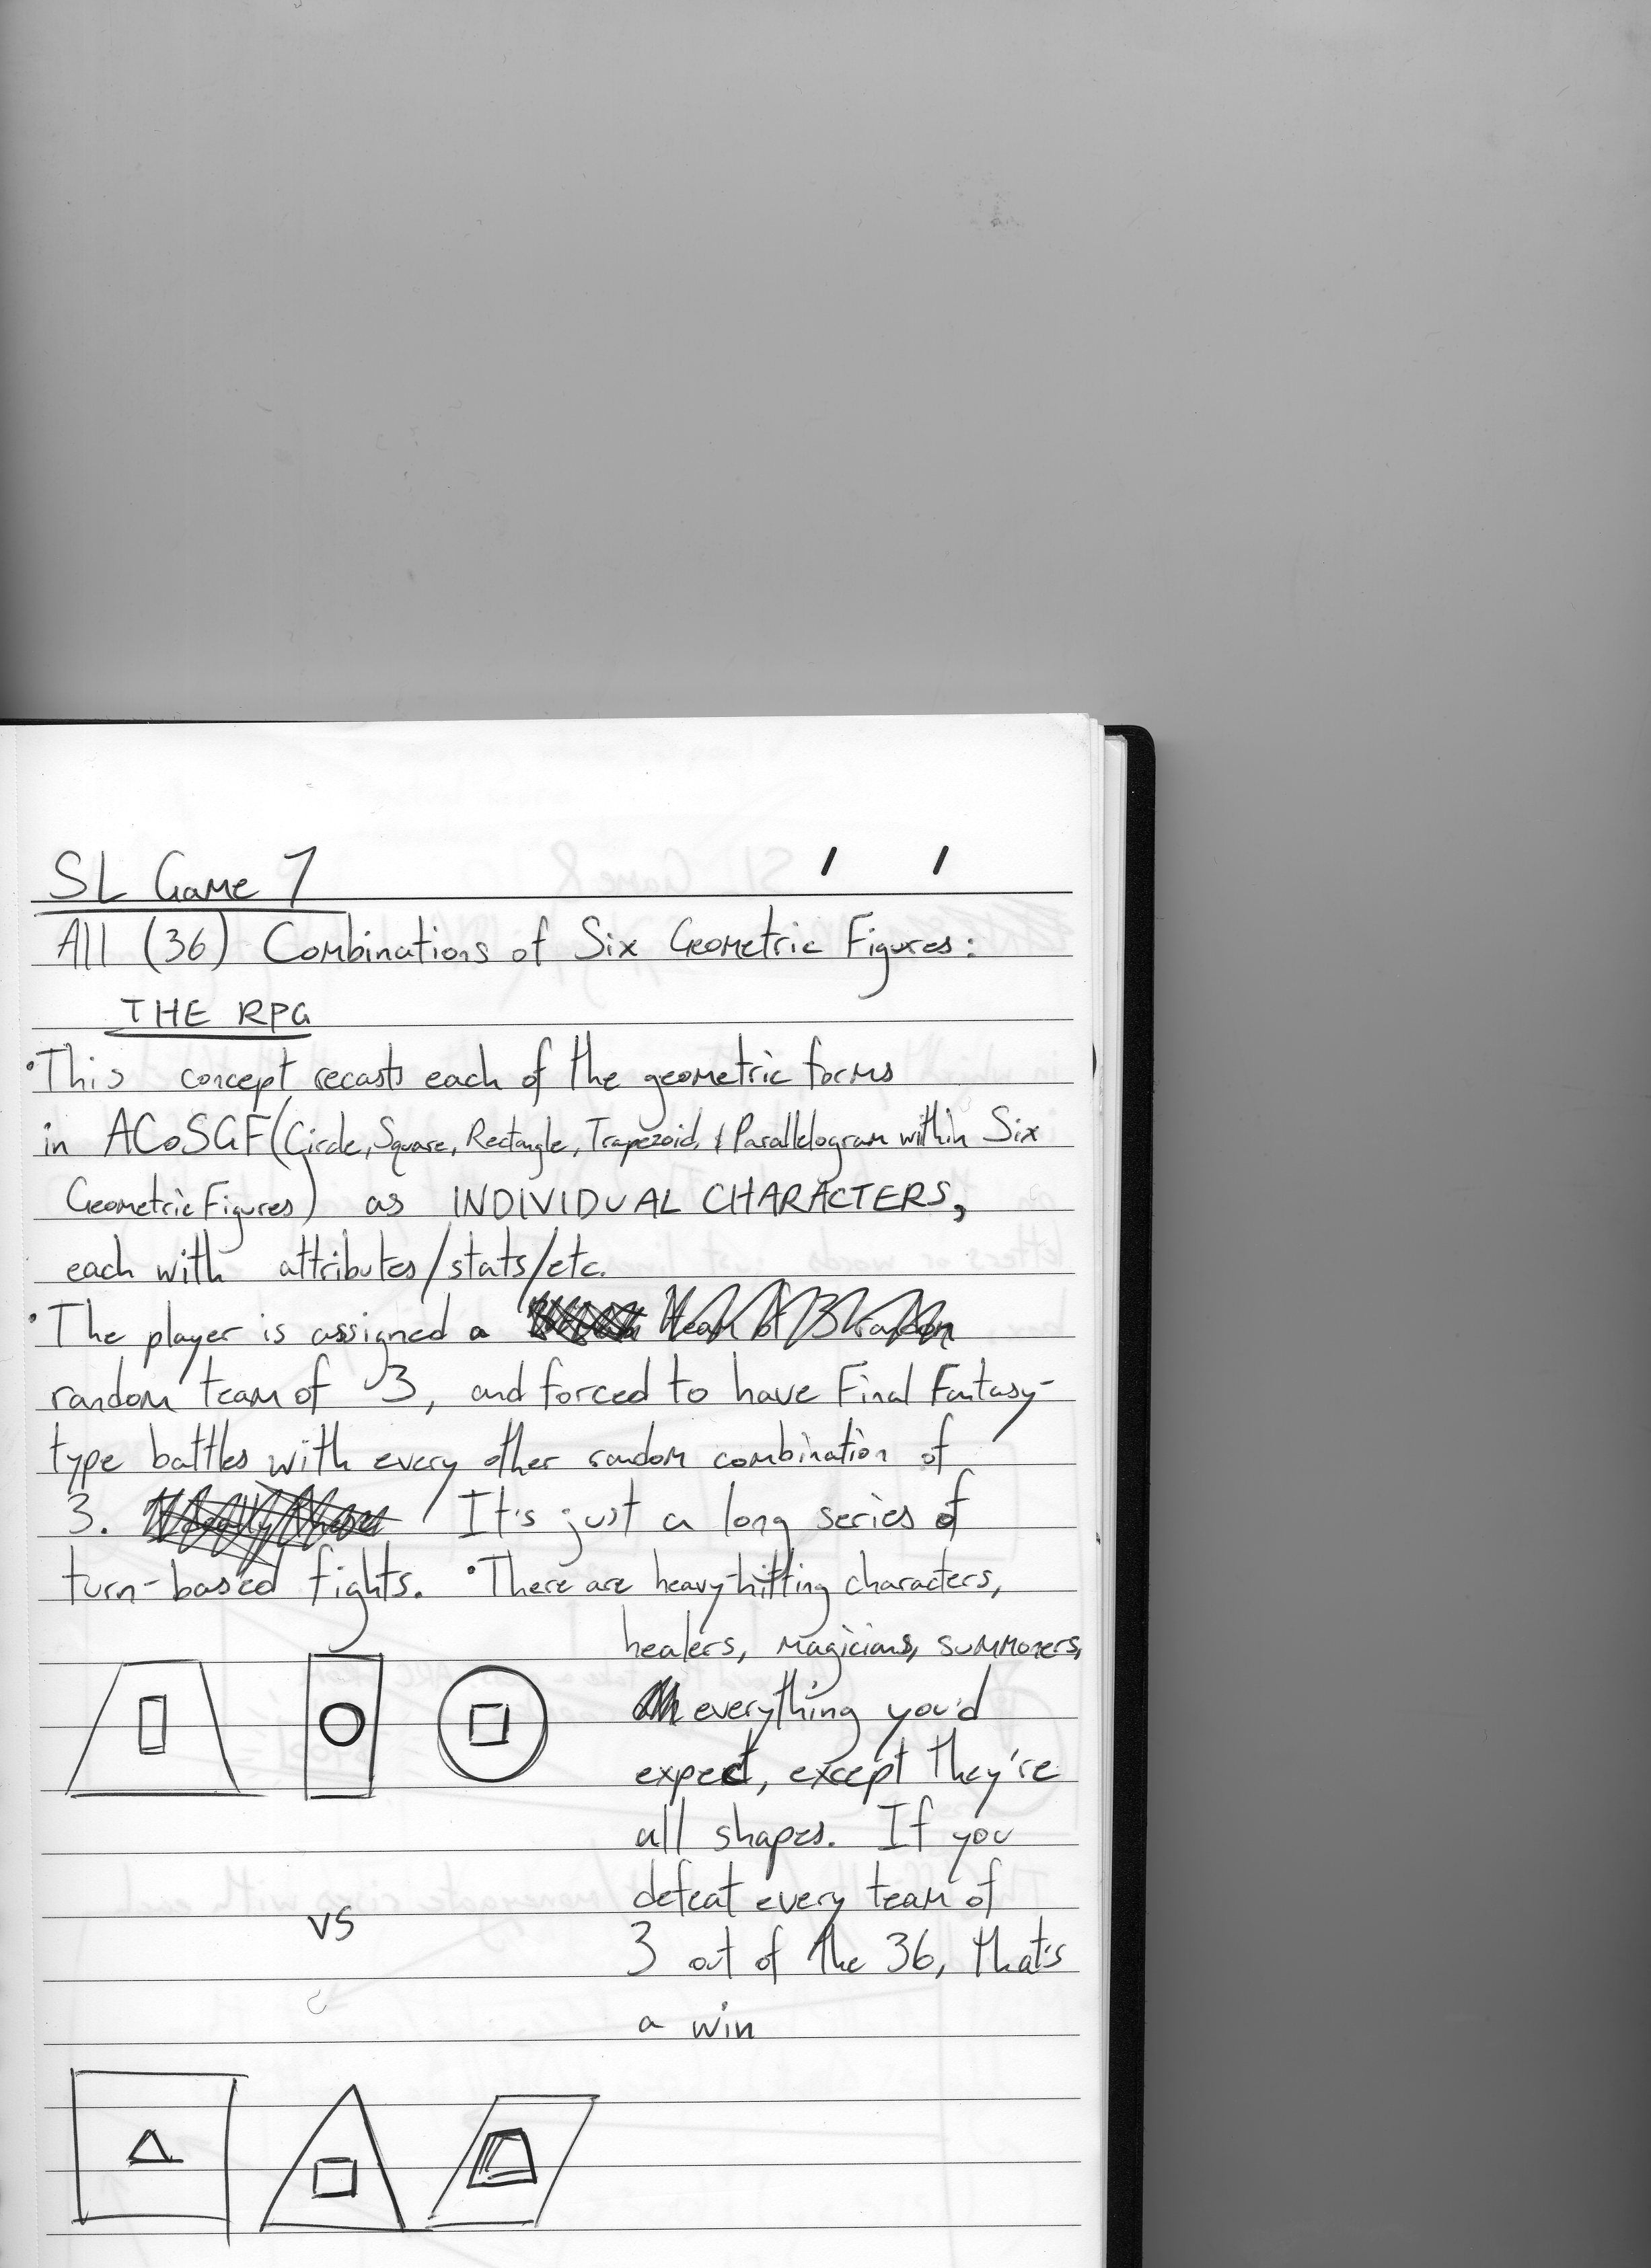 SL Game 7
All (36) Combinations of Six Geometric Figures:
THE RPG
•This concept recasts each of the geometric forms
in ACoSGF (Circle, Square, Rectangle, Trapezoid, & Parallelogram within Six
Geometric Figures) as INDIVIDUAL CHARACTERS,
each with attributes/stats/etc.
•The player is assigned a team of 3 random
random team of 3, and forced to have Final Fantasy-
type battles with every other random combination of
3. It's just a long series of
turn-based fights. •There are heavy-hitting characters,
healers, magicians, summoners,
everything you'd
expect, except they're
all shapes. If you
defeat every team of
3 out of the 36, that's
a win
vs